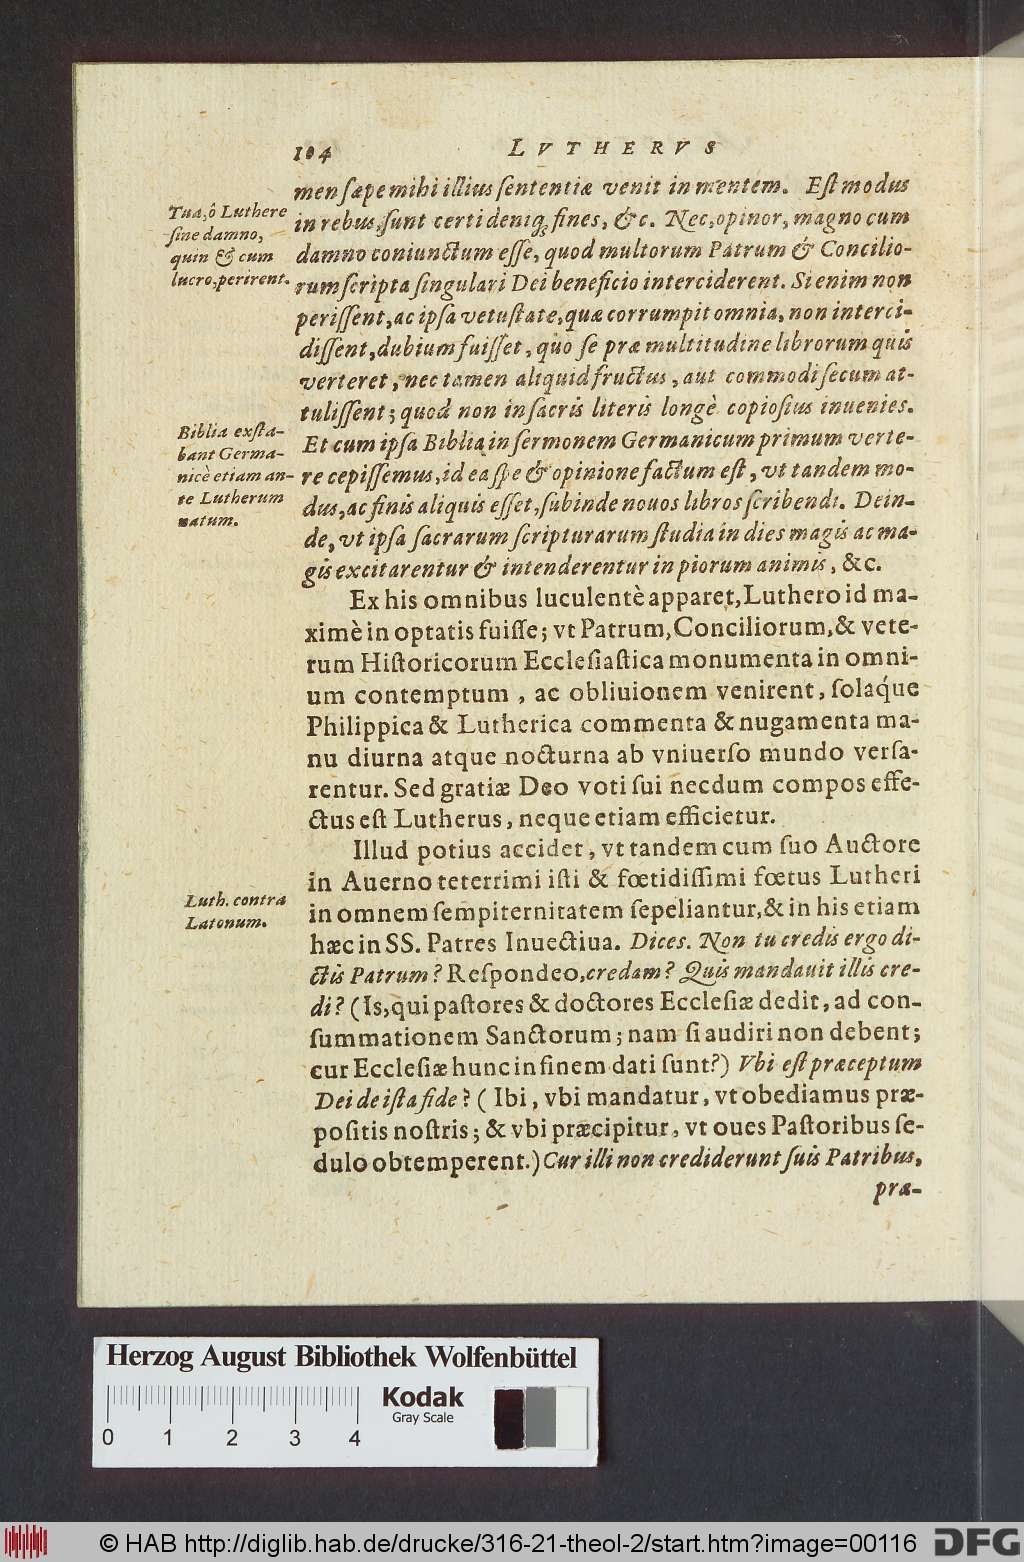 104 LVTHERVS
men sæpe mihi illius sententiæ venit in mentem. Est modus
in rebus, sunt certi deniq; fines, &c. Nec, opinor, magno cum
damno coniunctum esse, quod multorum Patrum & Concilio-
rum scripta singulari Dei beneficio interciderent. Si enim non
perissent, ac ipsa vetustate, quæ corrumpit omnia, non interci-
dissent, dubium fuisset, quo se præ multitudine librorum quis
verteret, nec tamen aliquid fructus, aut commodi secum at-
tulissent; quod non in sacris literis longè copiosius inuenies.
Et cum ipsa Biblia in sermonem Germanicum primum verte-
re cepissemus, id ea spe & opinione factum est, vt tandem mo-
dus, ac finis aliquis esset, subinde nouos libros scribendi. Dein-
de, vt ipsa sacrarum scripturarum studia in dies magis ac ma-
gis excitarentur & intenderentur in piorum animis, &c.
Tua, ô Luthere
sine damno,
quin & cum
lucro, perirent.
Biblia exsta-
bant Germa-
nicè etiam an-
te Lutherum
natum.
Ex his omnibus luculentè apparet, Luthero id ma-
ximè in optatis fuisse; vt Patrum, Conciliorum, & vete-
rum Historicorum Ecclesiastica monumenta in omni-
um contemptum, ac obliuionem venirent, solaq́ue
Philippica & Lutherica commenta & nugamenta ma-
nu diurna atque nocturna ab vniuerso mundo versa-
rentur. Sed gratiæ Deo voti sui necdum compos effe-
ctus est Lutherus, neque etiam efficietur.
Illud potius accidet, vt tandem cum suo Auctore
in Auerno teterrimi isti & fœtidissimi fœtus Lutheri
in omnem sempiternitatem sepeliantur, & in his etiam
hæc in SS. Patres Inuectiua. Dices. Non tu credis ergo di-
ctis Patrum? Respondeo, credam? Quis mandauit illis cre-
di? (Is, qui pastores & doctores Ecclesiæ dedit, ad con-
summationem Sanctorum; nam si audiri non debent;
cur Ecclesiæ hunc in finem dati sunt?) Vbi est præceptum
Dei de ista fide? (Ibi, vbi mandatur, vt obediamus præ-
positis nostris; & vbi præcipitur, vt oues Pastoribus se-
dulo obtemperent.) Cur illi non crediderunt suis Patribus,
præ-
Luth. contra
Latonum.
Herzog August Bibliothek Wolfenbüttel
Kodak
Gray Scale
0 1 2 3 4
© HAB http://diglib.hab.de/drucke/316-21-theol-2/start.htm?image=00116
DFG